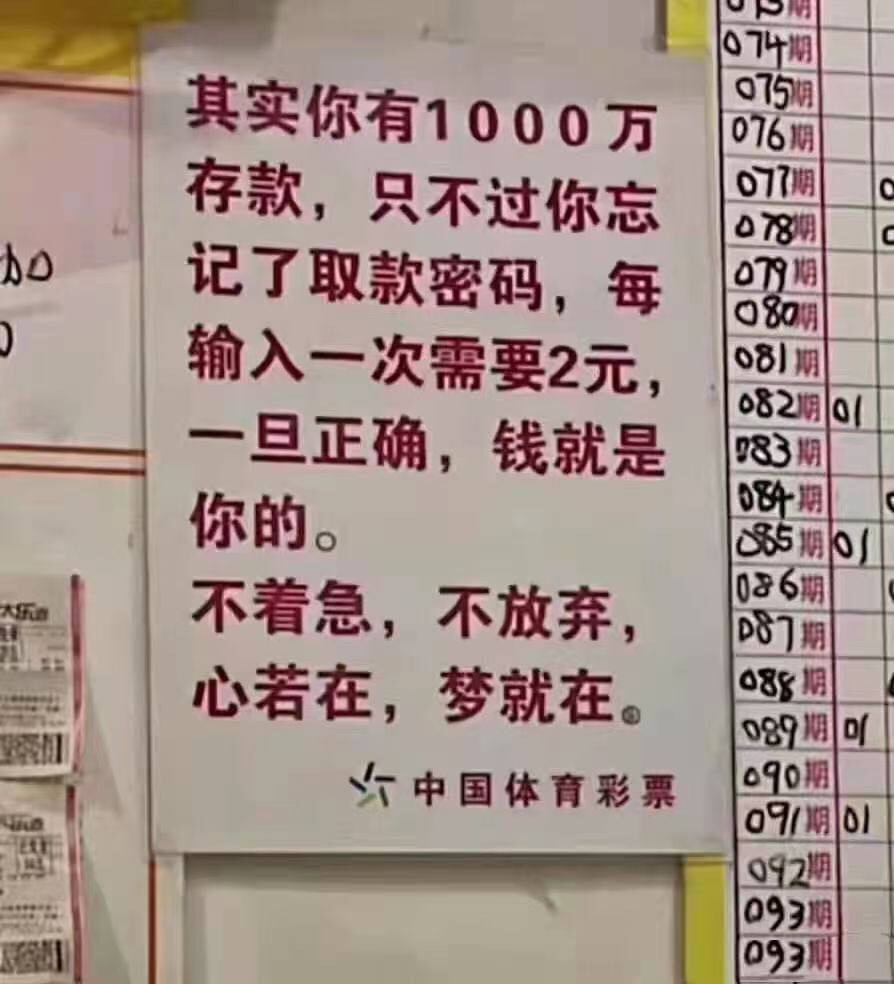 其实你有1000万
存款，只不过你忘
记了取款密码，每
输入一次需要2元，
一旦正确，钱就是
你的。
不着急，不放弃，
心若在，梦就在。
中国体育彩票
074期
075期
076期
077期
078期
079期
080期
081期
082期 01
083期
084期
085期 01
086期
087期
088期
089期 01
090期
091期 01
092期
093期
093期